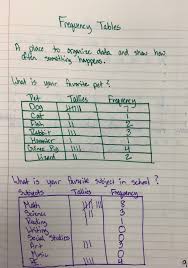 Frequency Tables
A place to organize data and show how
often something happens.
What is your favorite pet?
Pet Tallies Frequency
Dog
Cat 1
Fish 2
Rabbit 3
Hamster 1
Guinea Pig 4
Lizard 2
What is your favorite subject in school?
Subjects Tallies Frequency
Math 8
Science 3
Reading
Writing
Social Studies
Art 3
Music 0